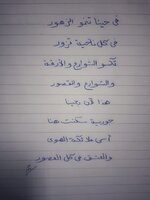 في حينا تنمو الزهور
في كل ناحية تزور
تكسو الشوارع والأزقة
والشوارع والقصور
هذا لأن بحينا
حورية سكنت هنا
أسمى ملائكة الهوى
والعشق في كل العصور